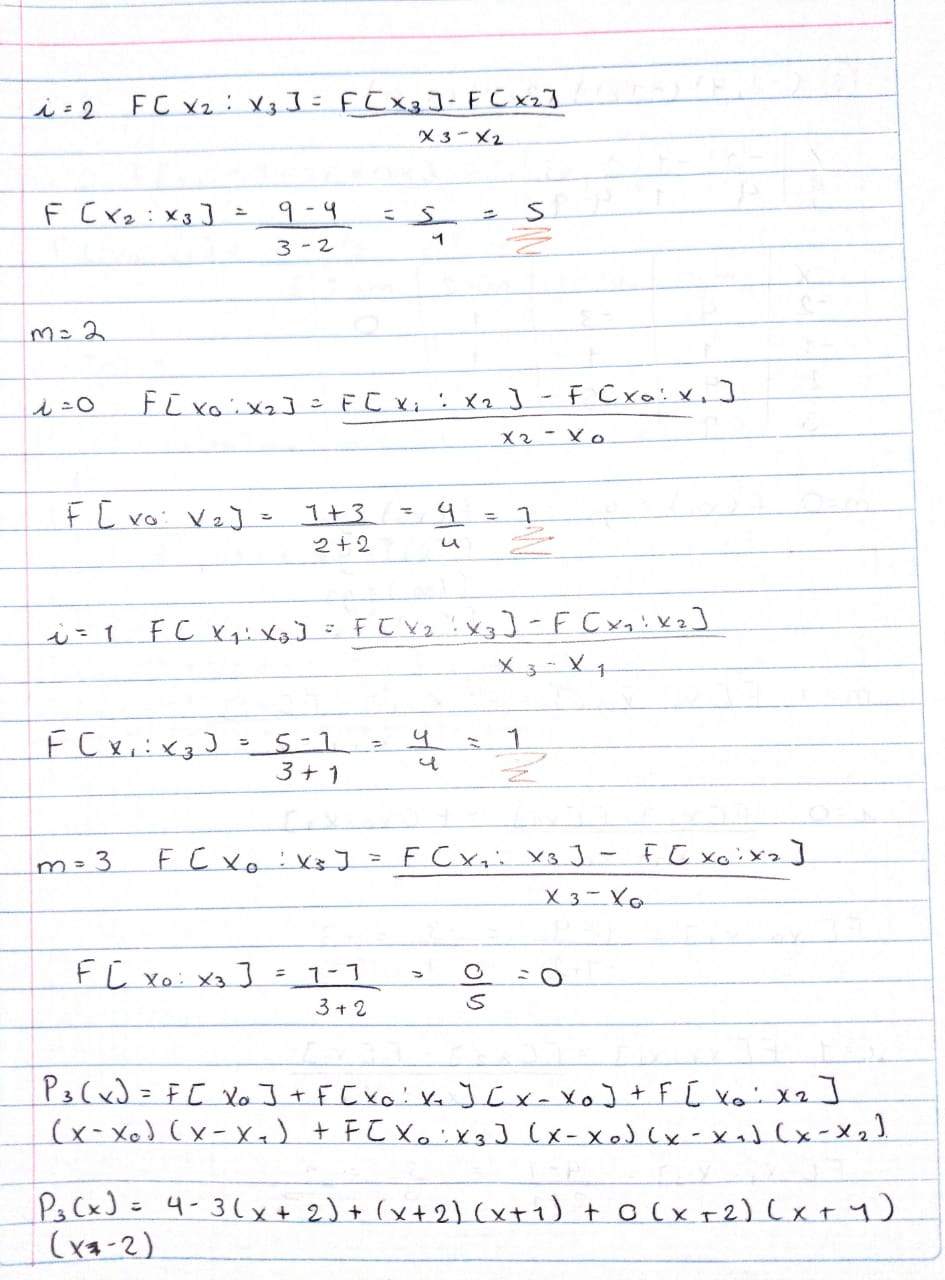 i=2 F[x2:x3] = F[x3]-F[x2]
x3-x2
F[x2:x3] = 9-4 = 5 = 5
3-2 1
m=2
i=0 F[x0:x2] = F[x1:x2] - F[x0:x1]
x2-x0
F[x0:x2] = 1+3 = 4 = 1
2+2 4
i=1 F[x1:x3] = F[x2:x3] - F[x1:x2]
x3-x1
F[x1:x3] = 5-1 = 4 = 1
3+1 4
m=3 F[x0:x3] = F[x1:x3] - F[x0:x2]
x3-x0
F[x0:x3] = 1-1 = 0 = 0
3+2 5
P3(x) = F[x0] + F[x0:x1][x-x0] + F[x0:x2]
(x-x0)(x-x1) + F[x0:x3](x-x0)(x-x1)(x-x2)
P3(x) = 4-3(x+2)+(x+2)(x+1)+0(x+2)(x+1)
(x-2)